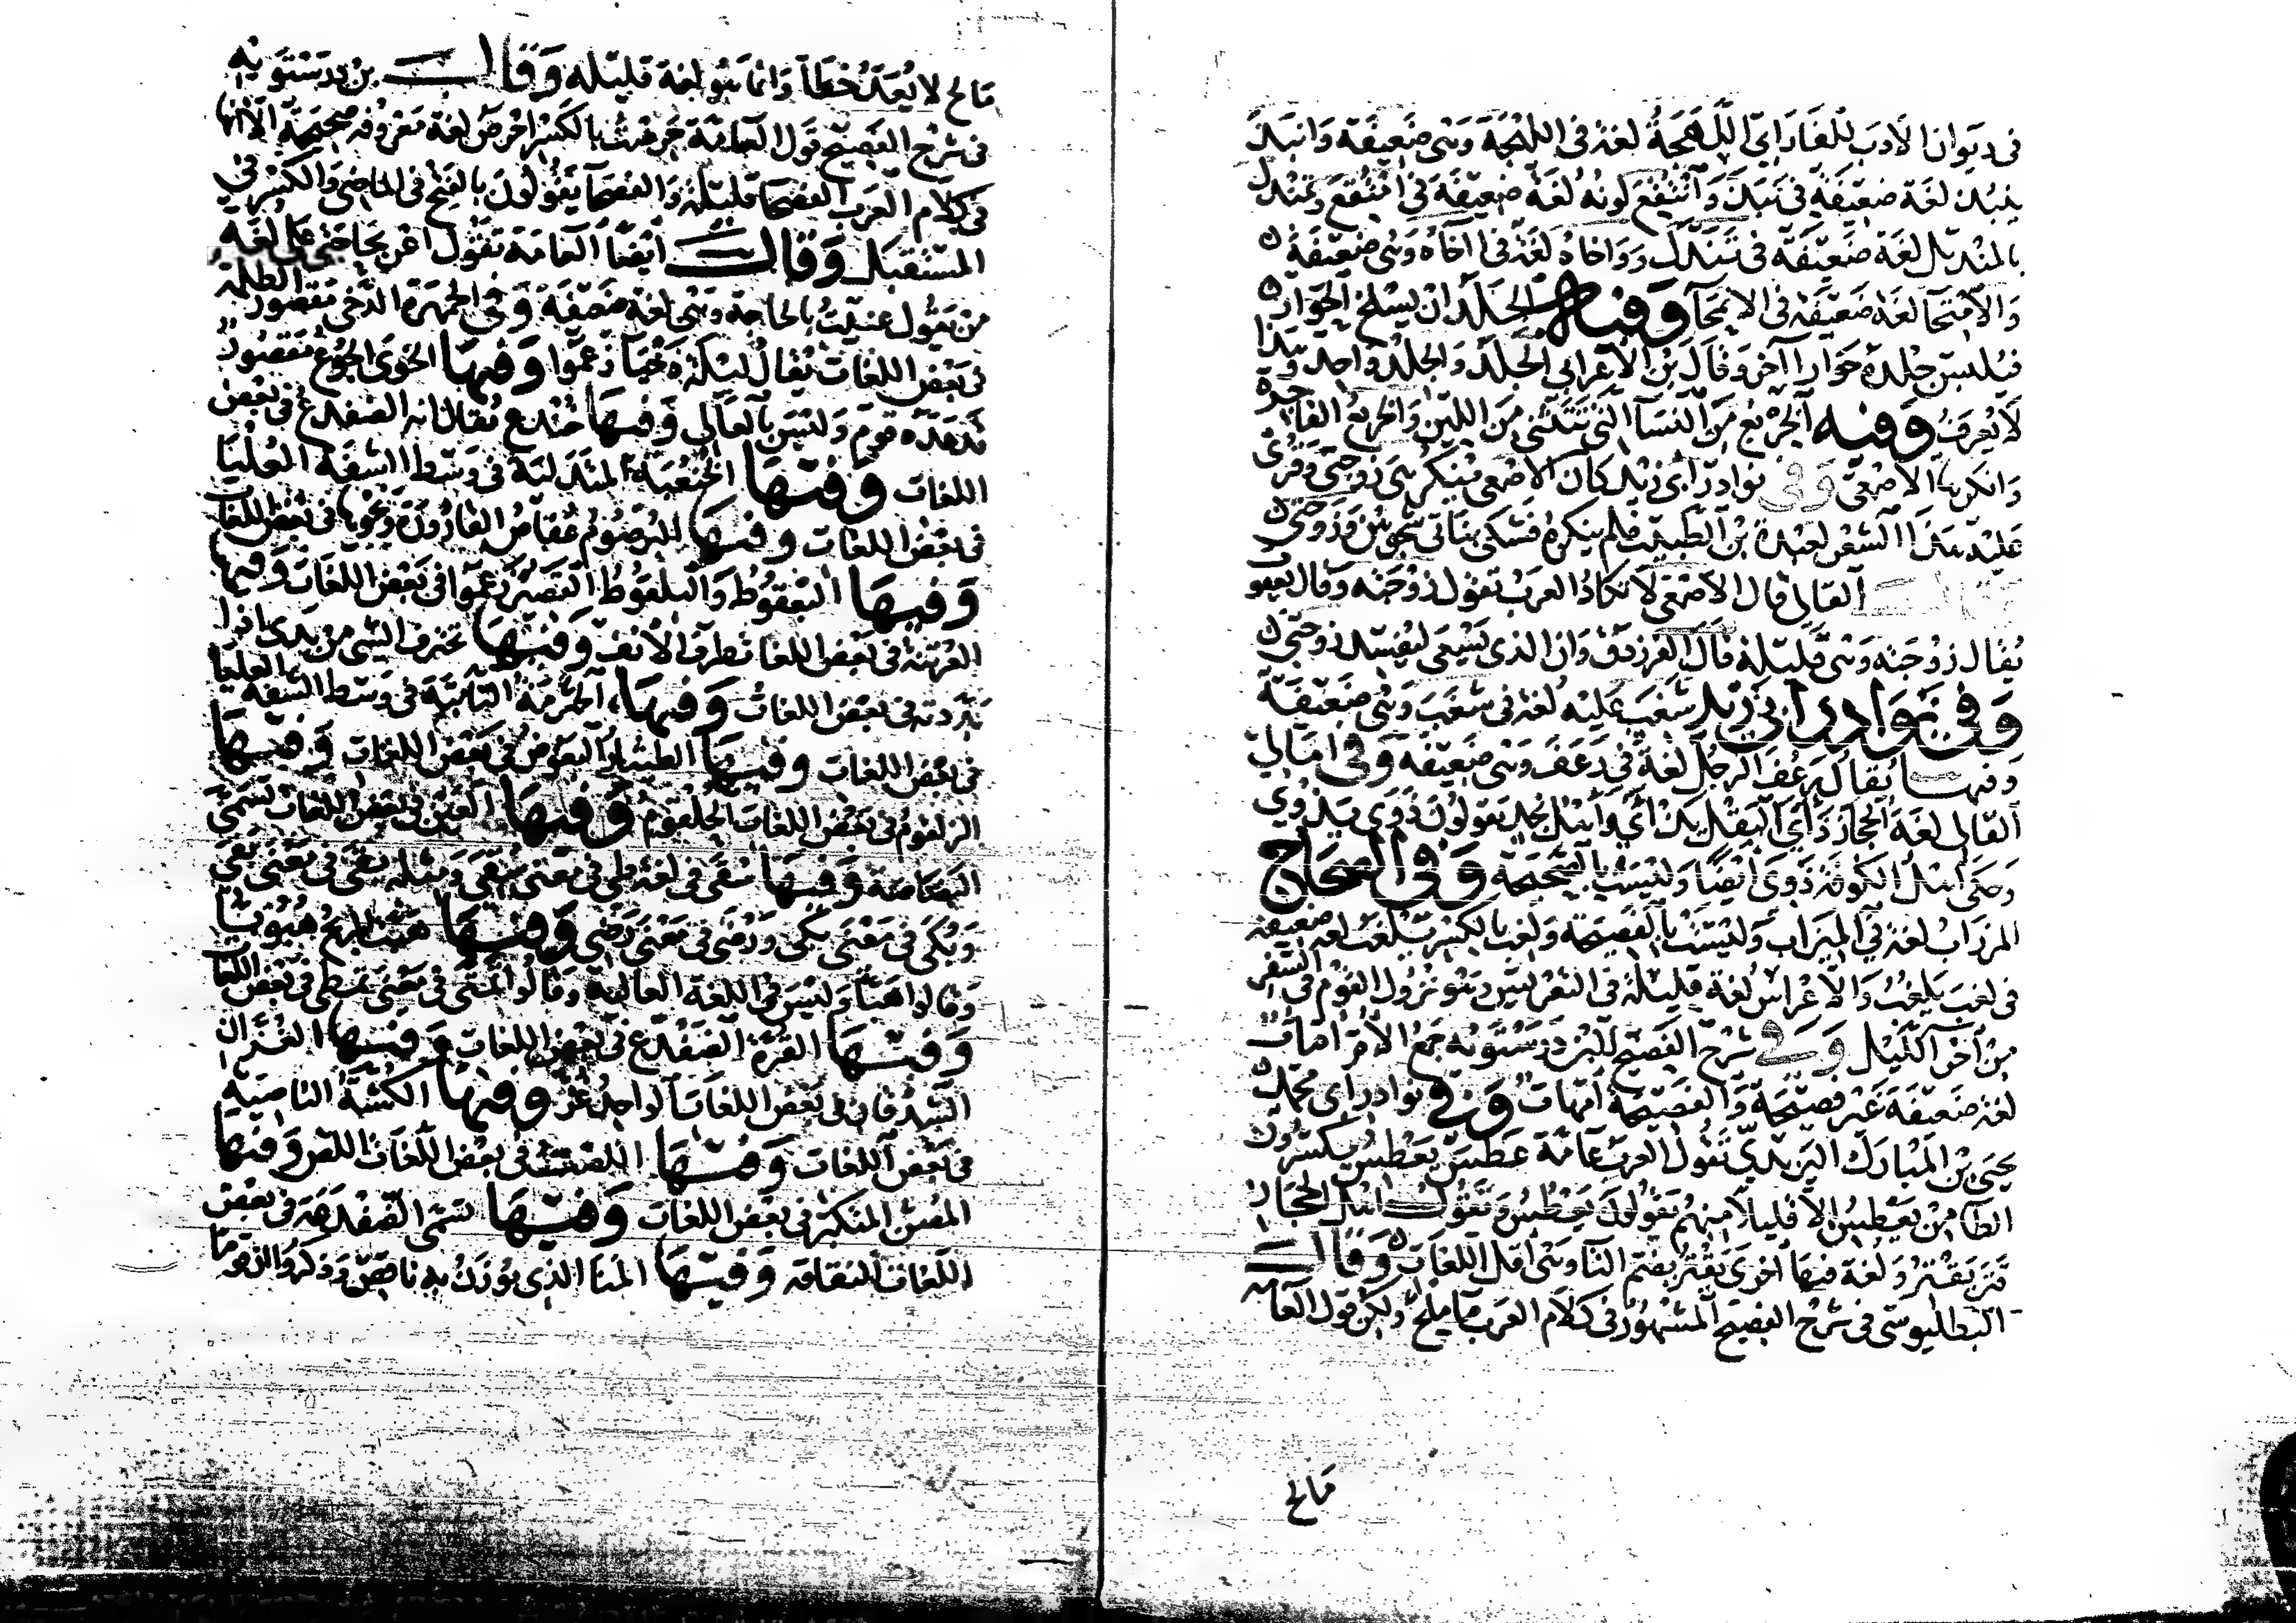 في ديوان الأدب للفارابي اللَّهْجَةُ لغة في اللَّهَجَة وهي ضعيفة وانبذ
نبيذا لغة ضعيفة في نبذ وانتقع لونه لغة ضعيفة في امتقع وتمندل
بالمنديل لغة ضعيفة في تندل وواخاه لغة في آخاه وهي ضعيفة
والامتحا لغة ضعيفة في الامحا وفيها الجَلَد ان يسلخ الحوار
فيلبس جلده حوارا آخر وقال بن الاعرابي الجَلَد والجِلْد واحد وهذا
لا يعرف وفيه الخريع من النسا التي تتثنى من اللين والخريع الفاجرة
وانكرها الاصمعي وفي نوادر أبي زيد كان الاصمعي ينكر هي زوجتي وقرئ
عليه هذا الشعر لعبدة بن الطبيب فلم ينكره فبكى بناتي شجوهن وزوجتي
القالي قال الاصمعي لا تكاد العرب تقول زوجته وقال يعقوب
يقال زوجته وهي قليلة قال الفرزدق وان الذي يسعى ليفسد زوجتي
وفي نوادر ابي زيد شغب عليه لغة في شغب وهي ضعيفة
وفيها يقال رعف الرجل لغة في رعف وهي ضعيفة وفي امالي
القالي لغة الحجاز ذأى البقل يذأى وأهل نجد يقولون ذوى يذوي
وحكى أهل الكوفة ذوي أيضا وليست بالفصيحة وفي الصحاح
المرزاب لغة في الميزاب وليست بالفصيحة ولغب بالكسر يلغب لغة ضعيفة
في لغب يلغب والاعراس لغة قليلة في التعريس وهو نزول القوم في السفر
من آخر الليل وفي شرح الفصيح لابن درستويه جمع الأم أمات
لغة ضعيفة غير فصيحة والفصيحة أمهات وفي نوادر أبي محمد
يحيى بن المبارك اليزيدي تقول العرب عامة عطس يعطس يكسرون
الطا من يعطس الا قليلا منهم يقولون يعطس وتقول اهل الحجاز
قتر يقتر ولغة فيها أخرى يقتر بضم التا وهي أقل اللغات وقال
البطليوسي في شرح الفصيح المشهور في كلام العرب ما ملح ولكن قول العامه
مالح
مالح لا يعد خطأ وانما هو لغة قليله وقال بن درستويه
في شرح الفصيح قول العامة حرصت بالكسر احرص لغة معروفه صحيحة الا انها
في كلام العرب الفصحا قليلة والفصحا يقولون بالفتح في الماضي والكسر في
المستقبل وقال ايضا العامة تقول اعن بحاجتي على لغة
من يقول عنيت بالحاجة وهي لغة ضعيفة وفي الجمهرة الدخي مقصور الظلمة
في بعض اللغات يقال ليلة دخيا زعموا وفيها الخوى الجوع مقصور
قد مده قوم وليس بالعالي وفيها خندع يقال انه الضفدع في بعض
اللغات وفيها الخنعبة المتدلية في وسط الشفة العليا
في بعض اللغات وفيها البرصوم عفاص القارورة ونحوها في بعض اللغات
وفيها البعقوط والبلقوط القصير زعموا في بعض اللغات وفيها
العرتنة في بعض اللغات طرف الأنف وفيها تخذرف الشي من يدي اذا
بددته في بعض اللغات وفيها الحثرمة الناتية في وسط الشفة العليا
في بعض اللغات وفيها الطيثار البعوض في بعض اللغات وفيها
الزلقوم في بعض اللغات الحلقوم وفيها العين في بعض اللغات تسمى
البصاصة وفيها بقى في لغة طي في معنى بقي ومثله نقى في معنى نقي
وبكى في معنى بكي ورضى في معنى رضي وفيها هبت الريح هبوبا
وقالوا هبا وليس في اللغة العالية وقالوا تمتى في معنى تمطى في بعض اللغات
وفيها القرة الضفدع في بعض اللغات وفيها الغزان
الشدقان في بعض اللغات الواحد غز وفيها الكشة الناصية
في بعض اللغات وفيها اللصت في بعض اللغات اللص وفيها
المضن المتكبر في بعض اللغات وفيها تسمى الضفدعة في بعض
اللغات النقاقة وفيها المنا الذي يوزن به ناقص وذكروا ان قوما